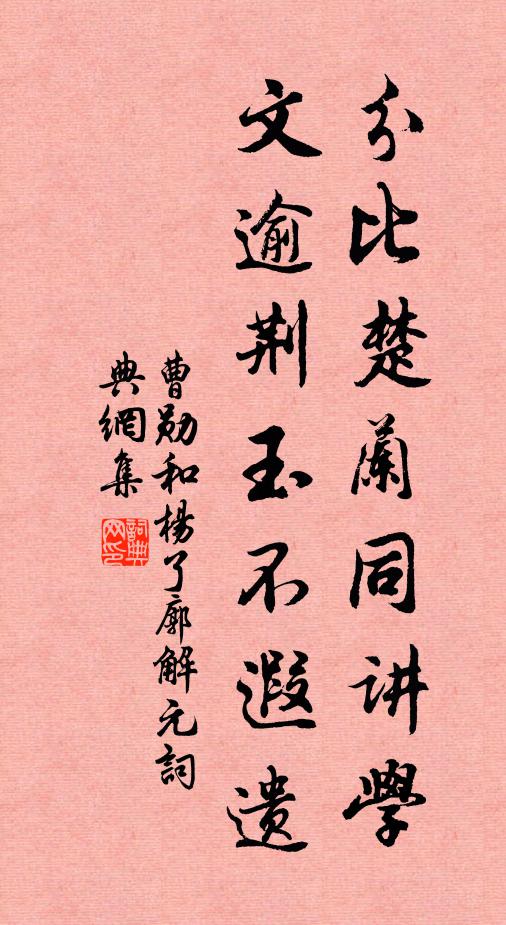 分比楚蘭同讲學
文逾荆玉不遐遗
曹勋和楊了廓解元詞
典網集
詞典
网印